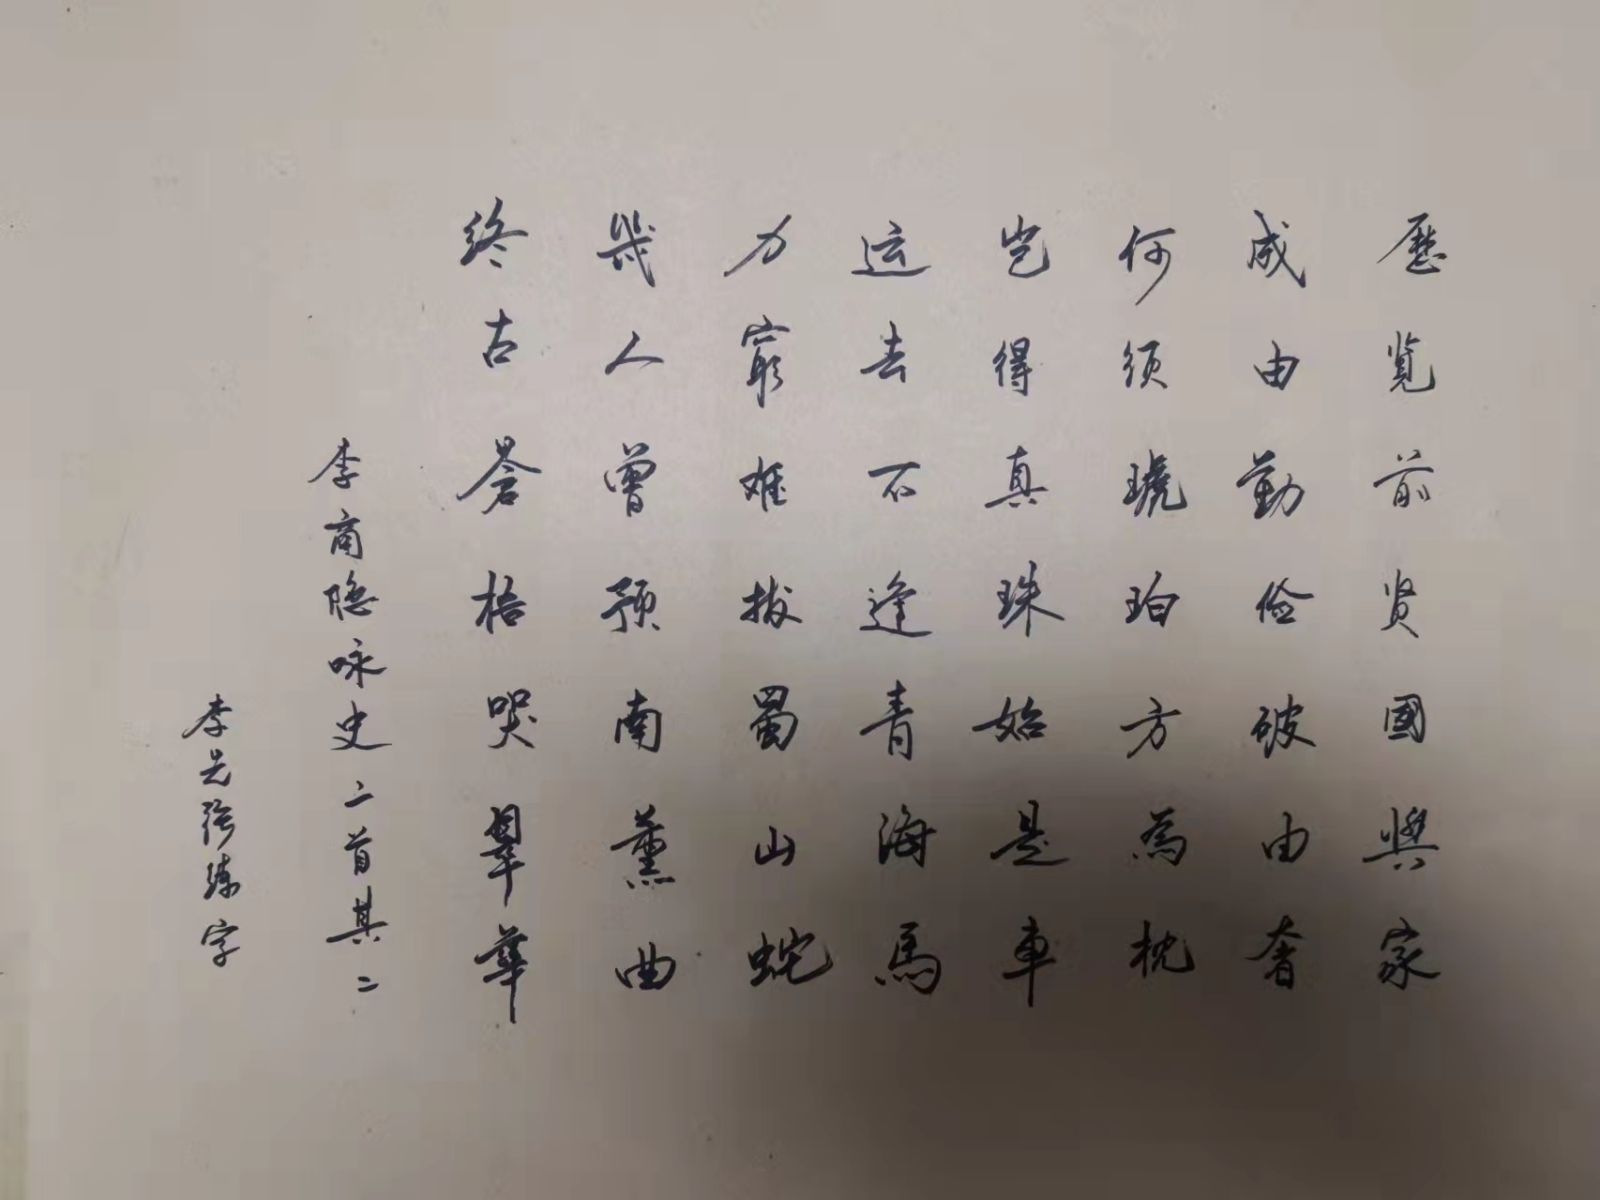 歷览前贤國與家
成由勤俭破由奢
何须琥珀方為枕
岂得真珠始是車
运去不逢青海馬
力窮难拔蜀山蛇
幾人曾预南薰曲
终古蒼梧哭翠華
李商隐咏史二首其二
李元强练字